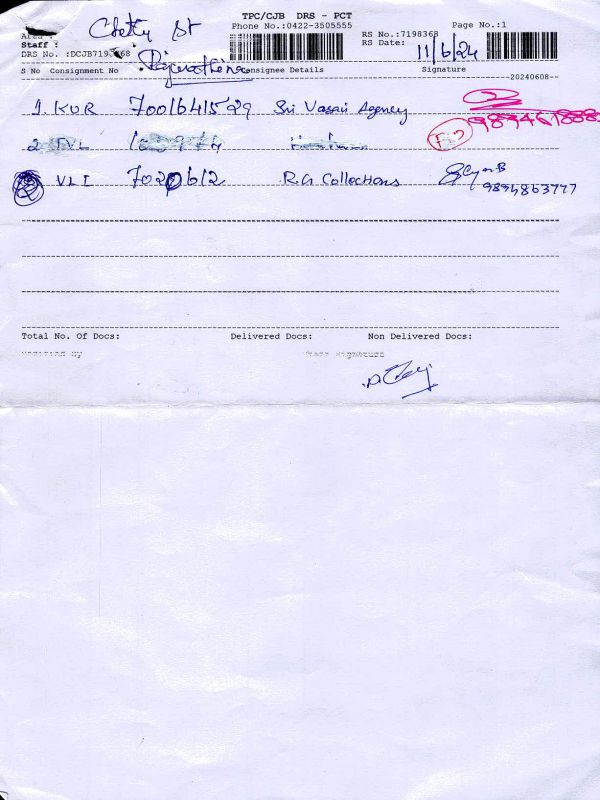 TPC/CJB DRS - PCT
Chetty St
Phone No.:0422-3505555
Page No.:1
RS No.:7198368
Staff :
RS Date: 11/6/24
DRS No. :DCJB7198368
S No Consignment No Consignee Details Signature
20240608
1. KUR 7001641529 Sri Vasavi Agency
2 TVL
VLI 7020612 R.G Collections 9894863777
Total No. Of Docs: Delivered Docs: Non Delivered Docs: